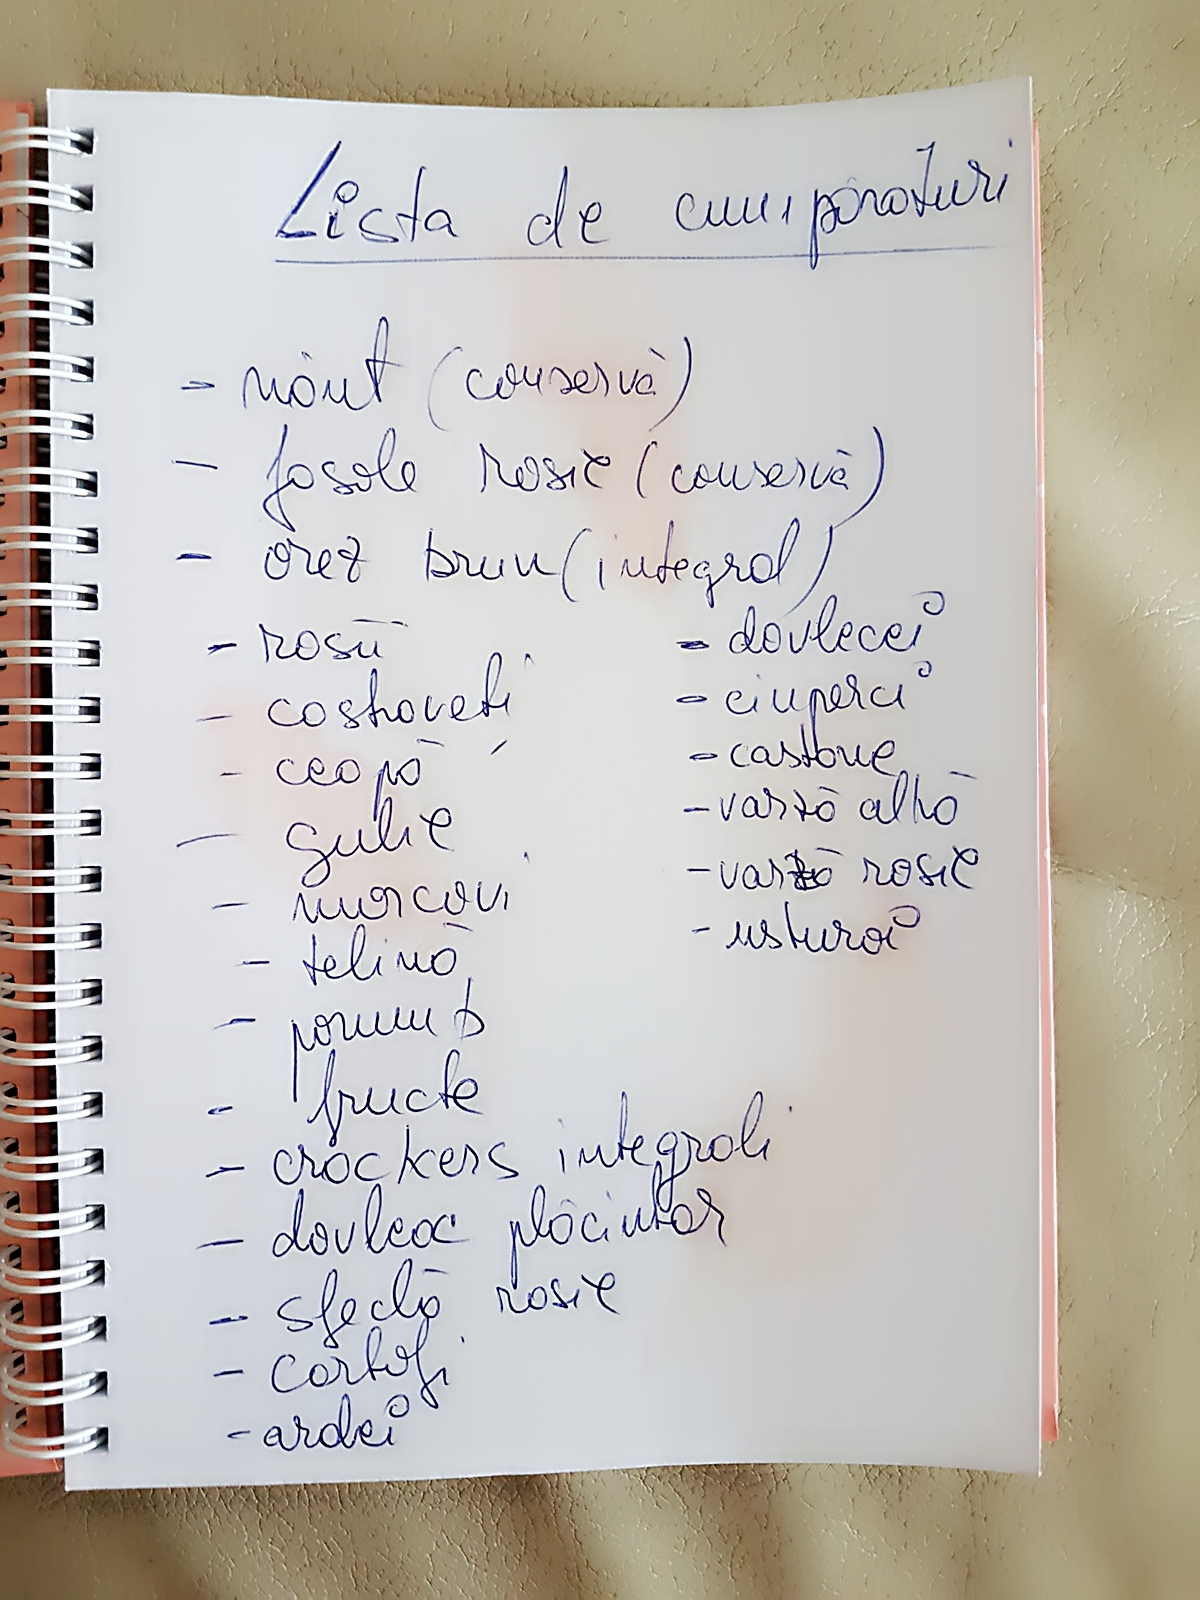 Lista de cumpărături
- năut (conservă)
- fasole rosie (conservă)
- orez brun (integral)
- rosii
- castraveti
- ceapă
- gulie
- morcovi
- telină
- porumb
- fructe
- crackers integrali
- dovleac plăcintar
- sfeclă rosie
- cartofi
- ardei
- dovlecei
- ciuperci
- castane
- varză albă
- varză rosie
- usturoi